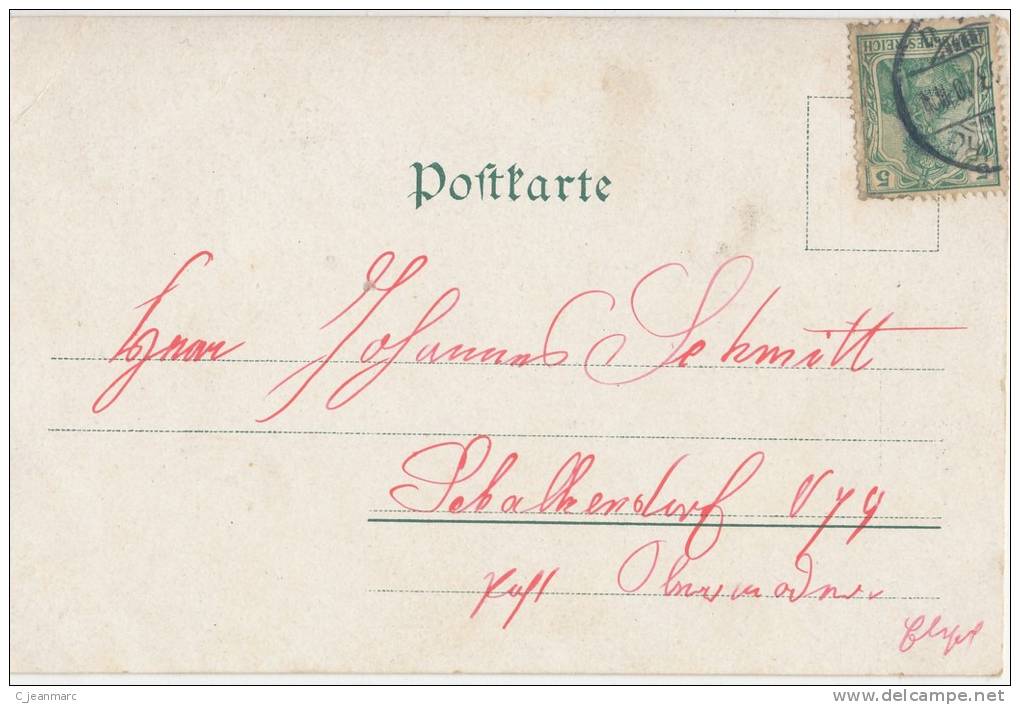 5 5
DEUTSCHES REICH
Postkarte
Herrn Johannes Schmitt
Schalkendorf N 79
Post Obermodern
Elsass
C jeanmarc
www.delcampe.net